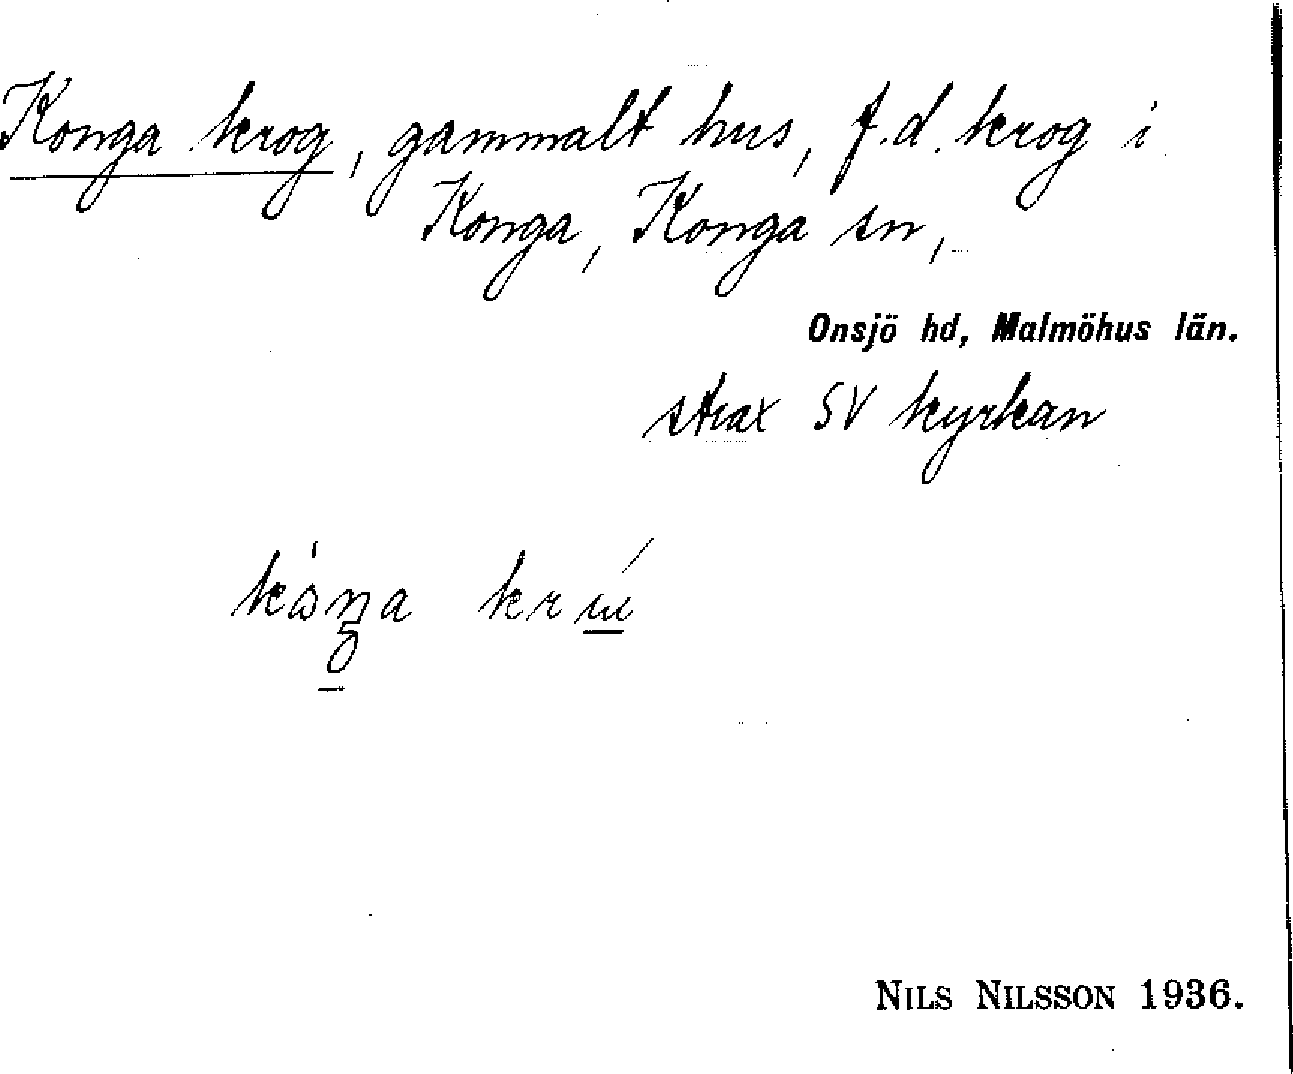 Konga krog, gammalt hus, f.d. krog i
Konga, Konga sn,
Onsjö hd, Malmöhus län.
strax SV kyrkan
NILS NILSSON 1936.